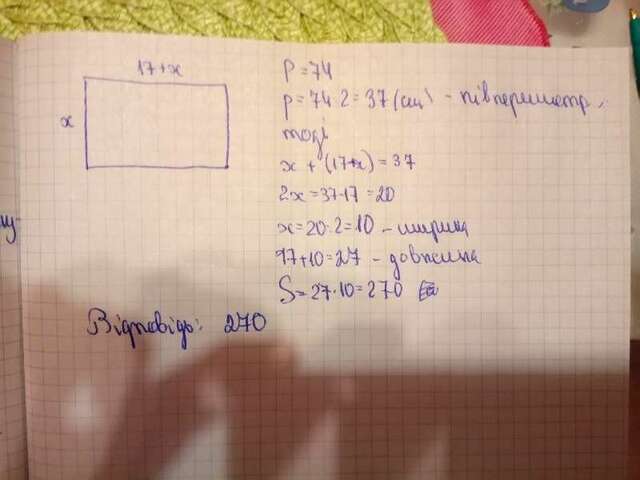 17+x
x
P=74
p=74:2=37 (см) - півпериметр,
тоді
x + (17+x) = 37
2x=37-17=20
x=20:2=10 - ширина
17+10=27 - довжина
S=27·10=270
Відповідь: 270